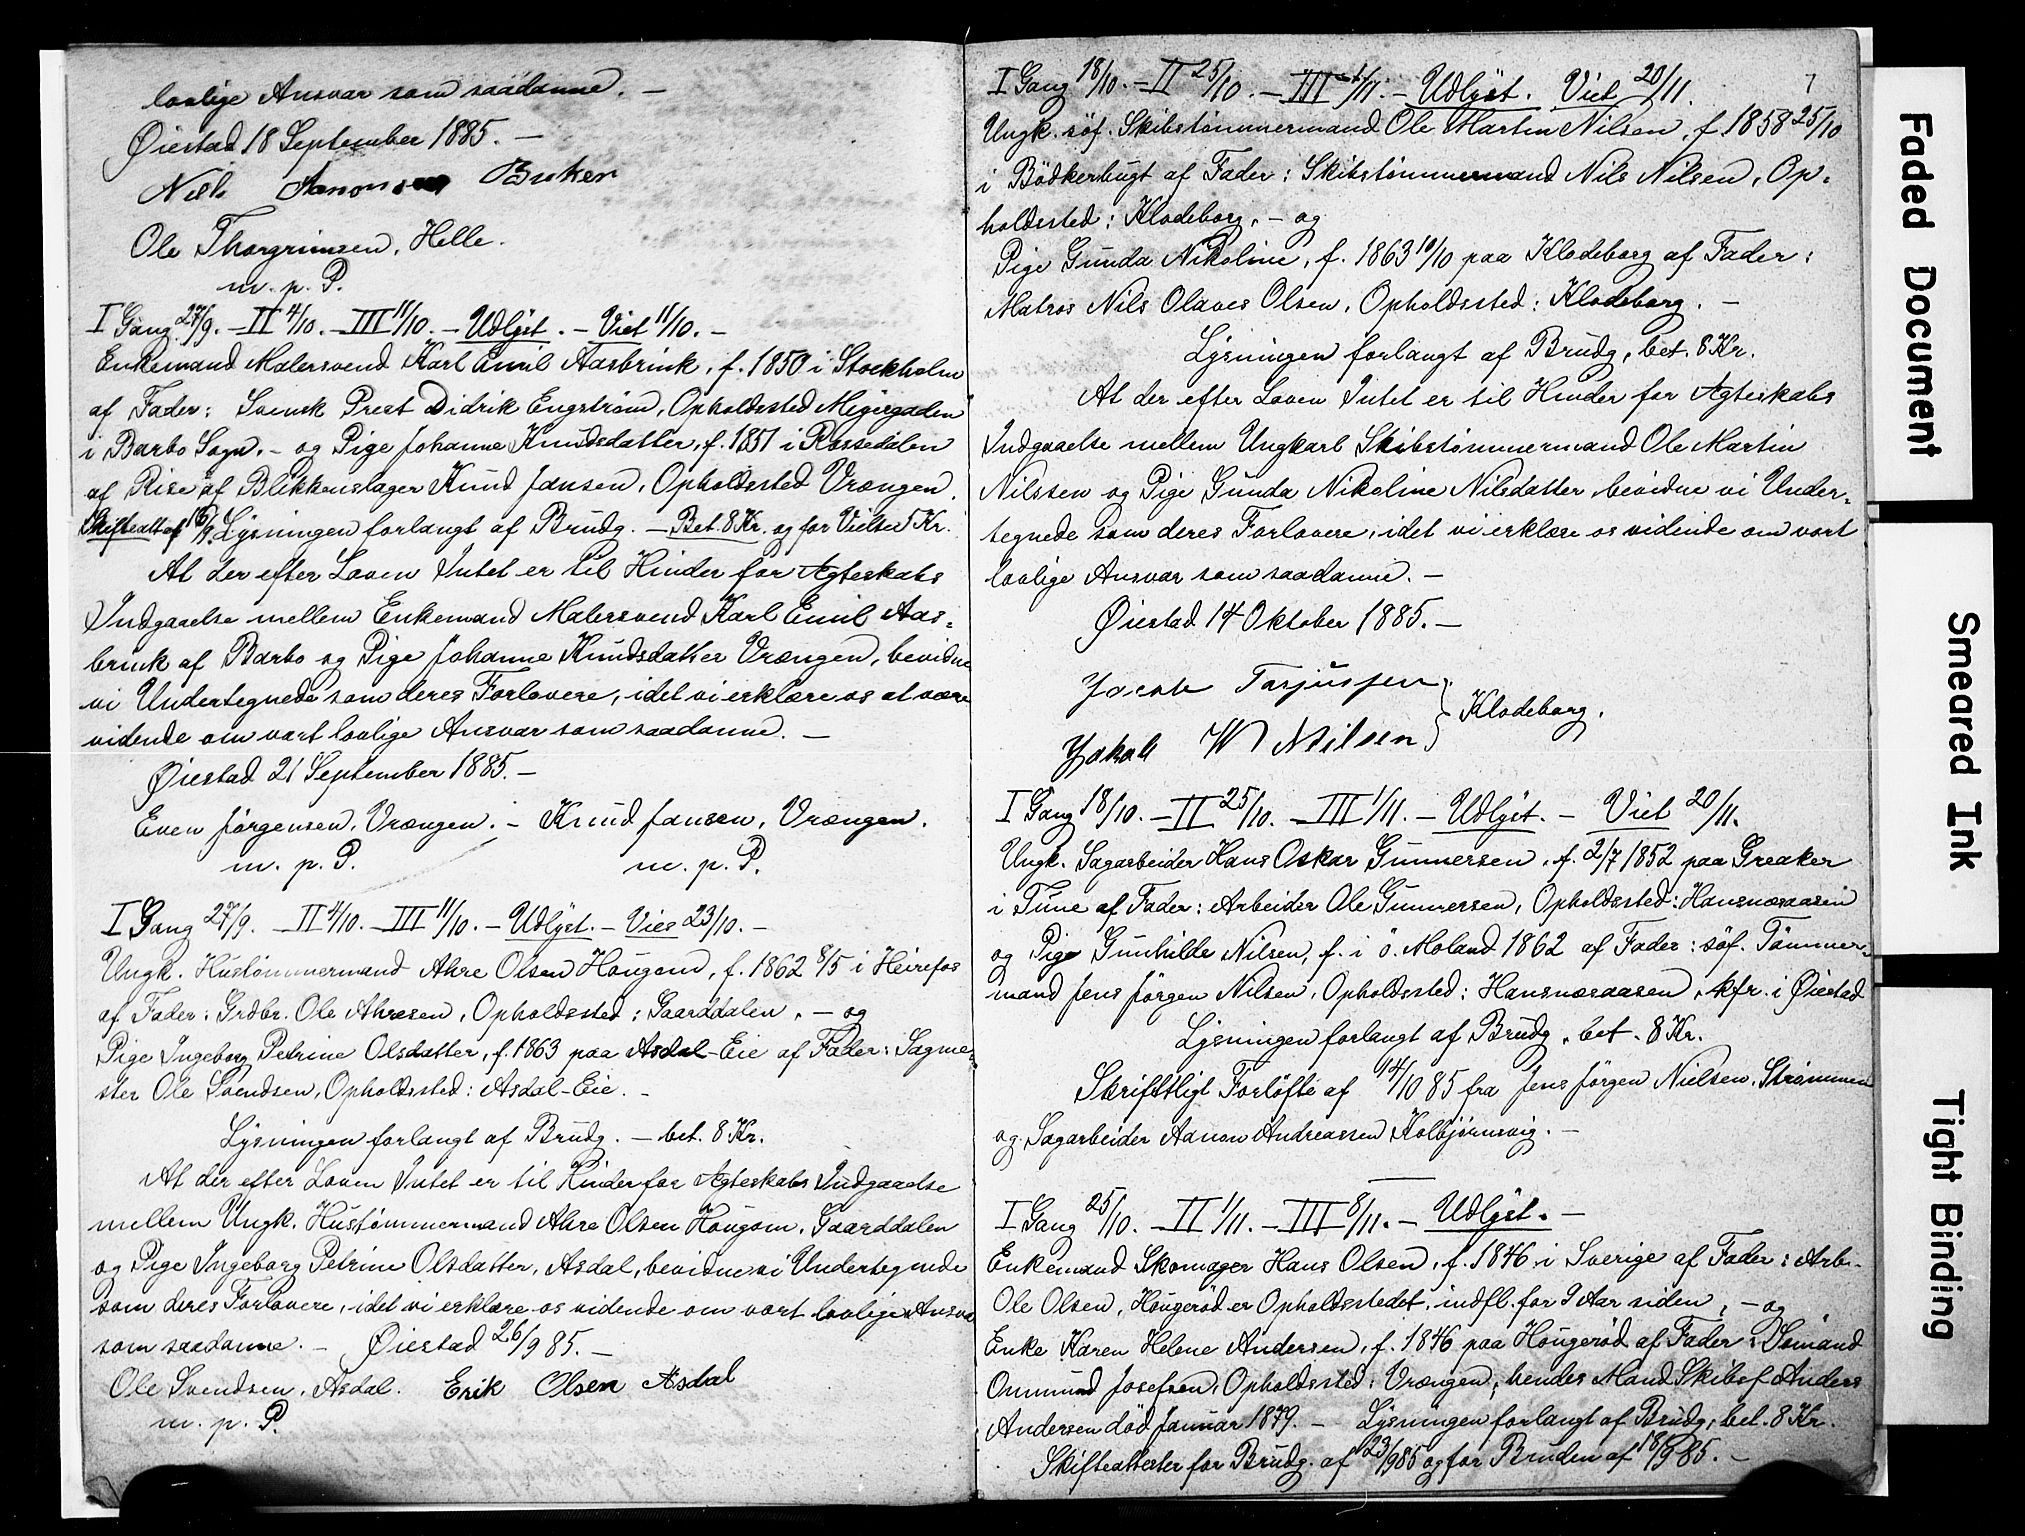 lovlige Ansvar som saadanne. —
Øiestad 18 September 1885. —
Niels
Ole Thorgrimsen, Helle.
m. p. P.
I Gang 27/9. — II 4/10. — III 11/10. — Udlyst. — Viet 11/10. —
Enkemand Malersvend Karl Emil Aasbrink, f. 1850 i Stockholm
af Fader: Svensk Prest Didrik Engström, Opholdssted Megergaden
i Barbo Sogn. — og Pige Johanne Knudsdatter, f. 1851 i Rossedalen
af Rise af Blikkenslager Knud Jansen, Opholdssted Vrængen.
Skifteatt af 15/9. Lysningen forlangt af Brudg. — Bet. 8 Kr. og for Vielse 5 Kr.
At der efter Loven Intet er til Hinder for Ægteskabs
Indgaaelse mellem Enkemand Malersvend Karl Emil Aas-
brink af Barbo og Pige Johanne Knudsdatter Vrængen, bevidne
vi Undertegnede som deres Forlovere, idet vi erklære os at være
vidende om vort lovlige Ansvar som saadanne. —
Øiestad 21 September 1885. —
Even Jörgensen, Vrængen. — Knud Jansen, Vrængen.
m. p. P. m. p. P.
I Gang 27/9. — II 4/10. — III 11/10. — Udlyst. — Vies 23/10. —
Ungk. Hustømmermand Ahre Olsen Hougom, f. 1862 8/5 i Heirefos
af Fader: Grdbr. Ole Ahresen, Opholdssted: Gaarddalen. — og
Pige Ingeborg Petrine Olsdatter, f. 1863 paa Asdal-Eie af Fader: Sagme-
ster Ole Svendsen, Opholdssted: Asdal-Eie. —
Lysningen forlangt af Brudg. — bet. 8 Kr.
At der efter Loven Intet er til Hinder for Ægteskabs Indgaaelse
mellem Ungk. Hustømmermand Ahre Olsen Hougom, Gaarddalen
og Pige Ingeborg Petrine Olsdatter, Asdal, bevidne vi Undertegnede
som deres Forlovere, idet vi erklære os vidende om vort lovlige Ansva
som saadanne. — Øiestad 26/9 85. —
Ole Svendsen, Asdal. Erik Olsen Asdal
m. p. P.
7
I Gang 18/10. — II 25/10. — III 1/11. — Udlyst. Viet 20/11.
Ungk. söf. Skibstømmermand Ole Martin Nilsen, f. 1858 25/10
i Bödkerbugt af Fader: Skibstømmermand Nils Nilsen, Op-
holdssted: Klodeborg, — og
Pige Gunda Nikoline, f. 1863 10/10 paa Klodeborg af Fader:
Matros Nils Olaves Olsen, Opholdssted: Klodeborg. —
Lysningen forlangt af Brudg. bet. 8 Kr.
At der efter Loven Intet er til Hinder for Ægteskabs
Indgaaelse mellem Ungkarl Skibstømmermand Ole Martin
Nilssen og Pige Gunda Nikoline Nilsdatter bevidne vi Under-
tegnede som deres Forlovere, idet vi erklære os vidende om vort
lovlige Ansvar som saadanne. —
Øiestad 14 Oktober 1885. —
Jacob Tarjussen
Klodeborg.
Jakob W Nilsen
I Gang 18/10. — II 25/10. — III 1/11. — Udlyst. — Viet 20/11.
Ungk. Sagarbeider Hans Oskar Gunnersen, f. 2/7 1852 paa Greaker
i Tune af Fader: Arbeider Ole Gunnersen, Opholdssted: Hansnæsaasen
og Pige Gunhilde Nilsen, f. i ö. Moland 1862 af Fader: söf. Tömmer-
mand Jens Jörgen Nilsen, Opholdssted: Hansnæsaasen, kfr. i Øiestad
Lysningen forlangt af Brudg. bet. 8 Kr.
Skriftligt Forlöfte af 14/10 85 fra Jens Jörgen Nielsen, Strømmen
og Sagarbeider Aanon Andreassen Kolbjørnsvig. —
I Gang 25/10. — II 1/11. — III 8/11. — Udlyst. —
Enkemand Skomager Hans Olsen, f. 1846 i Sverige af Fader: Arb.
Ole Olsen, Hougeröd er Opholdsstedet, indfl. for 9 Aar siden, — og
Enke Karen Helene Andersen, f. 1846 paa Hougeröd af Fader:
Onmund Josefsen, Opholdssted: Vrængen, hendes Mand Skibsf Anders
Andersen död Januar 1879. — Lysningen forlangt af Brudg. bet. 8 Kr.
Skifteattester for Brudg. af 23/9 85 og for Bruden af 18/9 85. —
Faded Document
Smeared Ink
Tight Binding